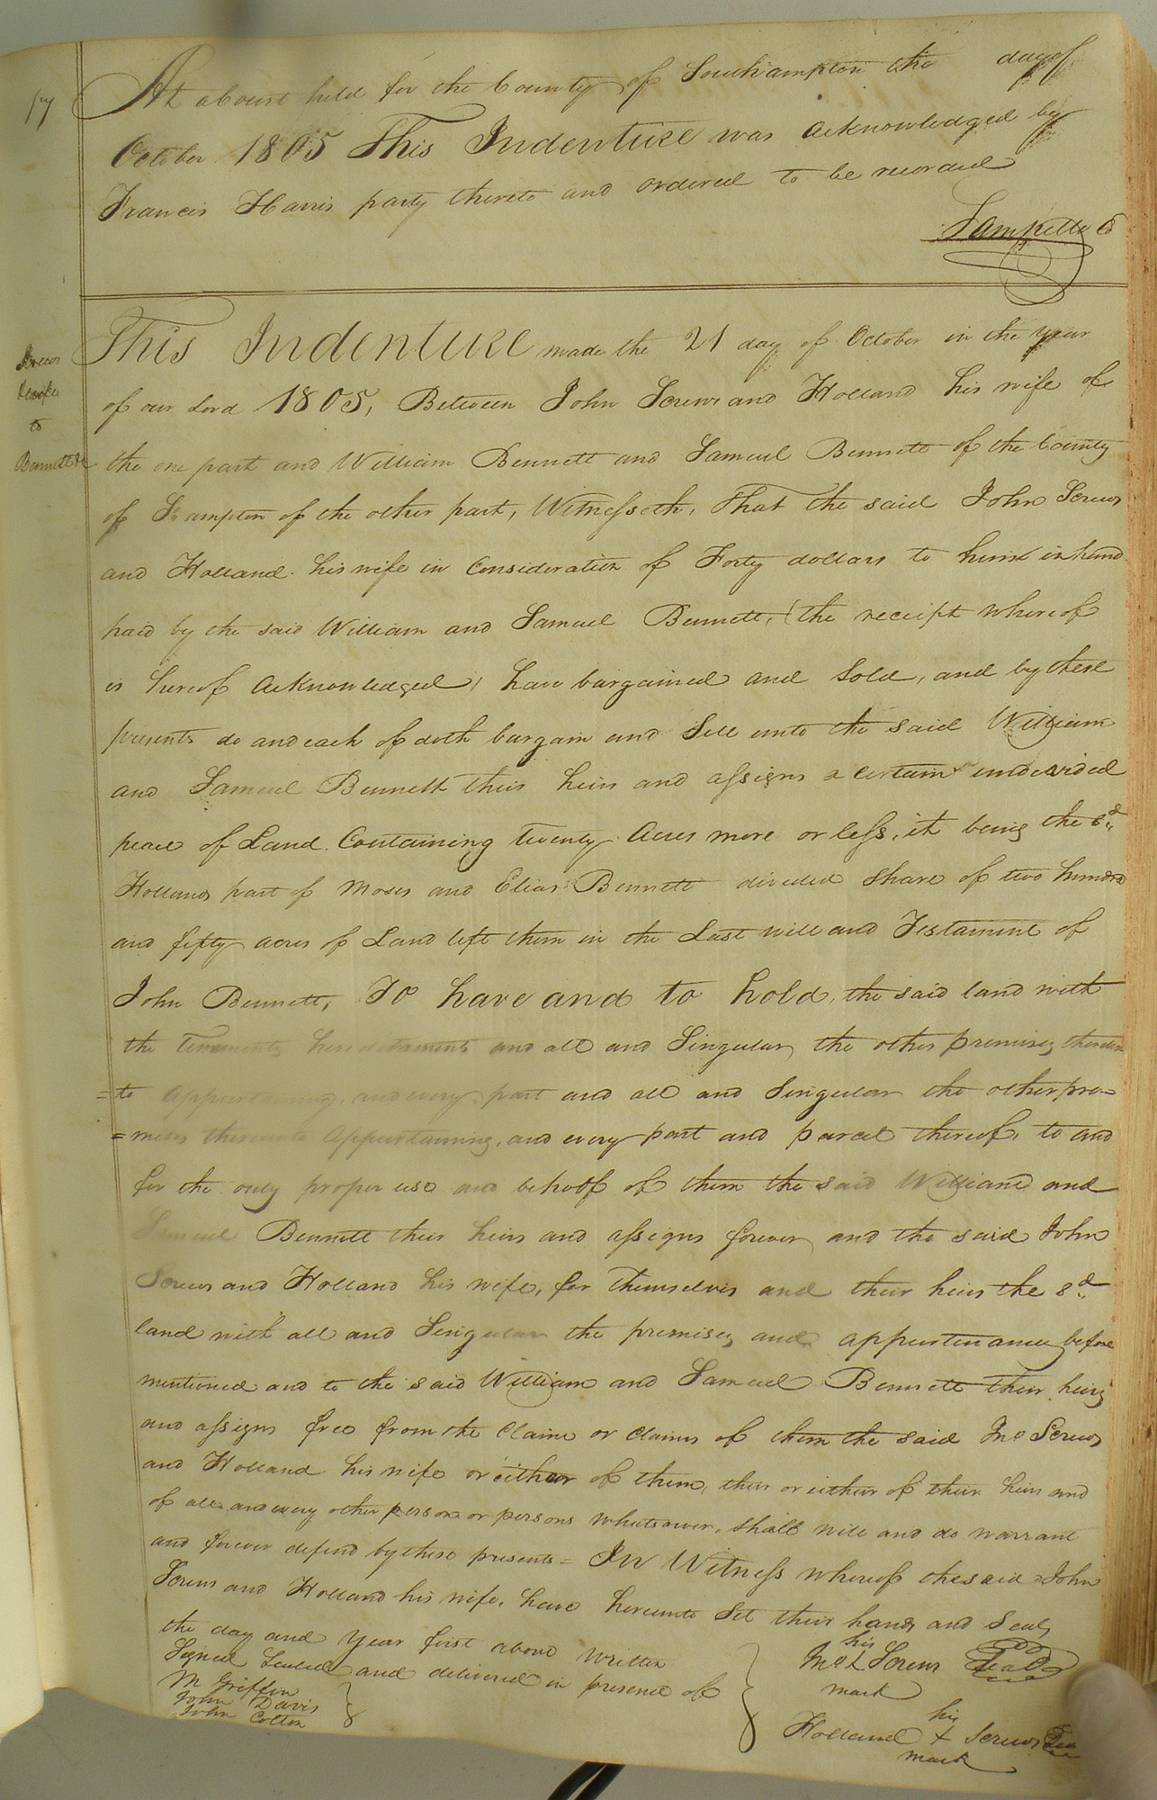 17
At a Court held for the County of Southampton the day of
October 1805 This Indenture was acknowledged by
Francis Harris party thereto and ordered to be recorded
Saml Kello C
Screws
&wife
to
Bennett &c
This Indenture made the 21 day of October in the year
of our Lord 1805, Between John Screws and Holland his wife of
the one part and William Bennett and Samuel Bennett of the County
of S:ampton of the other part, Witnesseth, That the said John Screws
and Holland his wife in Consideration of Forty dollars to him in hand
paid by the said William and Samuel Bennett, (the receipt whereof
is hereof acknowledged) have bargained and Sold, and by these
presents do and each of doth bargain and Sell unto the said William
and Samuel Bennett their heirs and assigns a certain undevided
peace of Land Containing twenty Acres more or less, it being the sd
Hollands part of Moses and Elias Bennett divided share of two hundred
and fifty acres of Land left them in the Last will and Testament of
John Bennett, To have and to hold, the said land with
the tenements hereditaments and all and Singular, the other premises thereun
=to appertaining, and every part and all and Singular the other pre=
=mises thereunto appertaining, and every part and parcel thereof, to and
for the only proper use and behoof of them the said William and
Samuel Bennett their heirs and assigns forever and the said John
Screws and Holland his wife, for themselves and their heirs the sd
land with all and Singular the premises and appurtenances before
mentioned and to the said William and Samuel Bennett their heirs
and assigns free from the Claim or Claims of them the said Jno Screws
and Holland his wife or either of them, their or either of their heirs and
of all and every other person or persons whatsoever, shall will and do warrant
and forever defend by these presents = In Witness whereof the said John
Screws and Holland his wife, have hereunto Set their hands and Seals
the day and year first above written
Signed Sealed and delivered in presence of
M Griffin
John Davis
John Colton
his
Jno X Screws Seal
mark
his
Holland + Screws Seal
mark